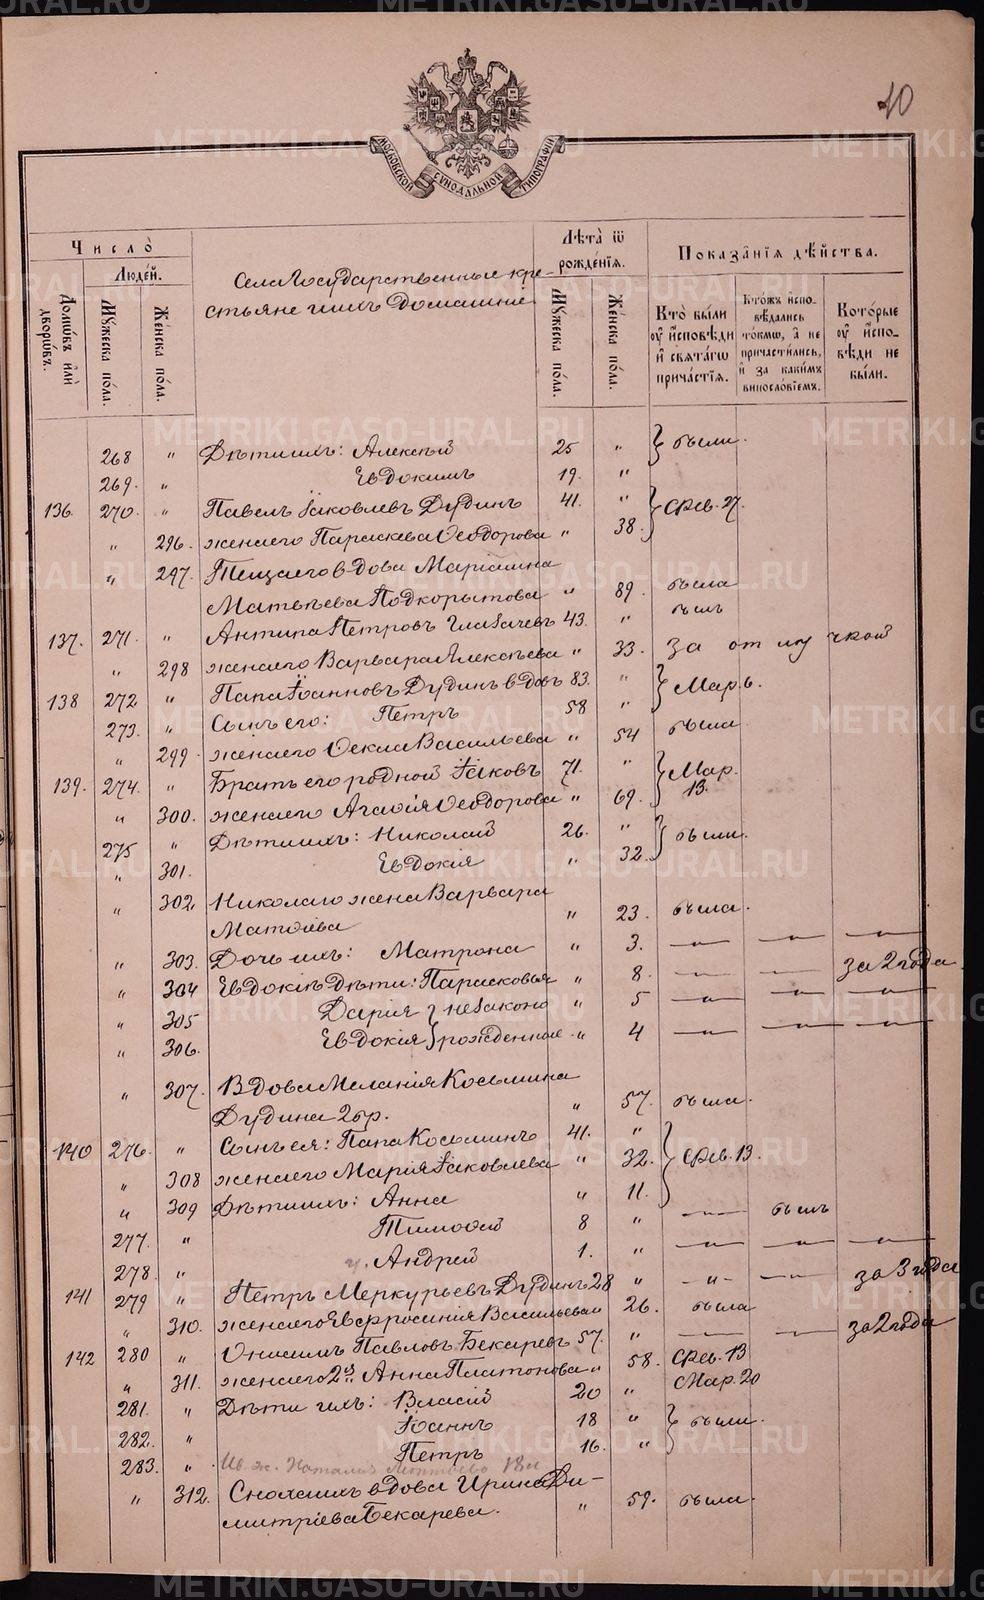 40
МОСКОВСКОЙ СУНОДАЛЬНОЙ ТИПОГРАФІИ
Число̀
Людей.
Домѡ́въ илѝ дворѡ́въ.
Мꙋ́жеска по́ла.
Же́нска по́ла.
Села Государственные кре-
стьяне и ихъ домашніе
Лѣта̀ ѿ рожде́нїѧ.
Мꙋ́жеска по́ла.
Же́нска по́ла.
Показа̑нїѧ дѣ́йства.
Кто̀ бы́ли оу҆ и҆сповѣ́ди и҆ свѧта́гѡ прича́стїѧ.
Кто́жъ и҆спо-вѣдались то́кмѡ, а҆ не причасти́лись, и҆ за каки́мъ винослѡ́вїемъ.
Кото́рые оу҆ и҆спо-вѣди не бы́ли.
268 " Дѣти ихъ: Алексѣй 25 " были.
269. " Евдокимъ 19. "
136. 270. " Павелъ Іаковлевъ Дудинъ 41. " Фев. 27.
" 296. жена его Параскева Ѳеодорова " 38.
" 297. Теща его вдова Маріамна
Матвѣева Подкорытова " 89. была
137. 271. " Антипа Петровъ Глабачевъ 43. " былъ
" 298 жена его Варвара Алексѣева " 33. за отлучкой
138 272 " Папа Іоанновъ Дудинъ вдовъ 83. " Мар. 6.
273. " Сынъ его: Петръ 58 "
" 299. жена его Ѳекла Васильева " 54 была
139. 274. " Братъ его родной Іаковъ 71. " Мар. 13.
" 300. жена его Агаѳія Ѳеодорова " 69.
275 " Дѣти ихъ: Николай 26. " были.
" 301. Евдокія " 32.
" 302. Николаго жена Варвара
Матѳіева " 23. была.
" 303. Дочь ихъ: Матрона " 3. —"— —"— —"—
" 304 Евдокіи дѣти: Парасковья " 8. —"— —"— за 2 года.
" 305 Дарія } незаконо " 5 —"— —"— —"—
" 306. Евдокія } рожденные " 4 —"— —"— —"—
" 307. Вдова Меланія Косьмина
Дудина 2 бр. " 57. была.
140 276 " Сынъ ея: Папа Косьминъ 41. " Фев. 13.
" 308 жена его Марія Іаковлева " 32.
" 309 Дѣти ихъ: Анна " 11.
277. " Тимоѳей 8 " —"— былъ
278. " Андрей 1. " —"— —"— —"—
141 279 " Петръ Меркурьевъ Дудинъ 28 " —"— —"— за 3 года
" 310. жена его Евфросинія Васильева " 26. была
142 280 " Онисимъ Павловъ Бекаревъ 57. " —"— —"— за 2 года
" 311. жена его 2я Анна Платонова " 58. Фев. 13
281. " Дѣти ихъ: Власій 20 " Мар. 20
282. " Іоаннъ 18 " были.
283. " Петръ 16. "
Ив. ж. Наталія 18
" 312. Сноха ихъ вдова Ирина Ди-
митріева Бекарева. " 59. была.
METRIKI.GASO-URAL.RU